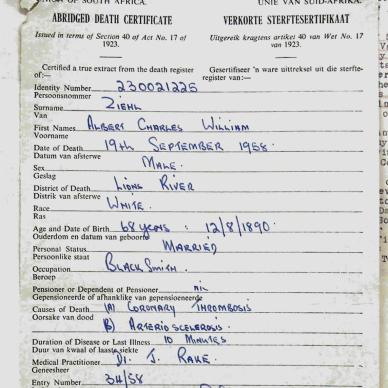 UNION OF SOUTH AFRICA. UNIE VAN SUID-AFRIKA.
ABRIDGED DEATH CERTIFICATE VERKORTE STERFTESERTIFIKAAT
Issued in terms of Section 40 of Act No. 17 of 1923. Uitgereik kragtens artikel 40 van Wet No. 17 van 1923.
Certified a true extract from the death register of:— Gesertifiseer 'n ware uittreksel uit die sterfteregister van:—
Identity Number 230021225
Persoonsnommer
Surname ZIEHL
Van
First Names ALBERT CHARLES WILLIAM
Voorname
Date of Death 19th SEPTEMBER 1958.
Datum van afsterwe
Sex MALE.
Geslag
District of Death LIONS RIVER
Distrik van afsterwe
Race WHITE.
Ras
Age and Date of Birth 68 years : 12/8/1890.
Ouderdom en datum van geboorte
Personal Status MARRIED
Persoonlike staat
Occupation BLACKSMITH.
Beroep
Pensioner or Dependent of Pensioner nil
Gepensioeneerde of afhanklike van gepensioeneerde
Causes of Death (A) CORONARY THROMBOSIS
Oorsake van dood (B) ARTERIOSCELEROSIS.
Duration of Disease or Last Illness 10 MINUTES
Duur van kwaal of laaste siekte
Medical Practitioner Dr. J.
Geneesheer
Entry Number 34/58